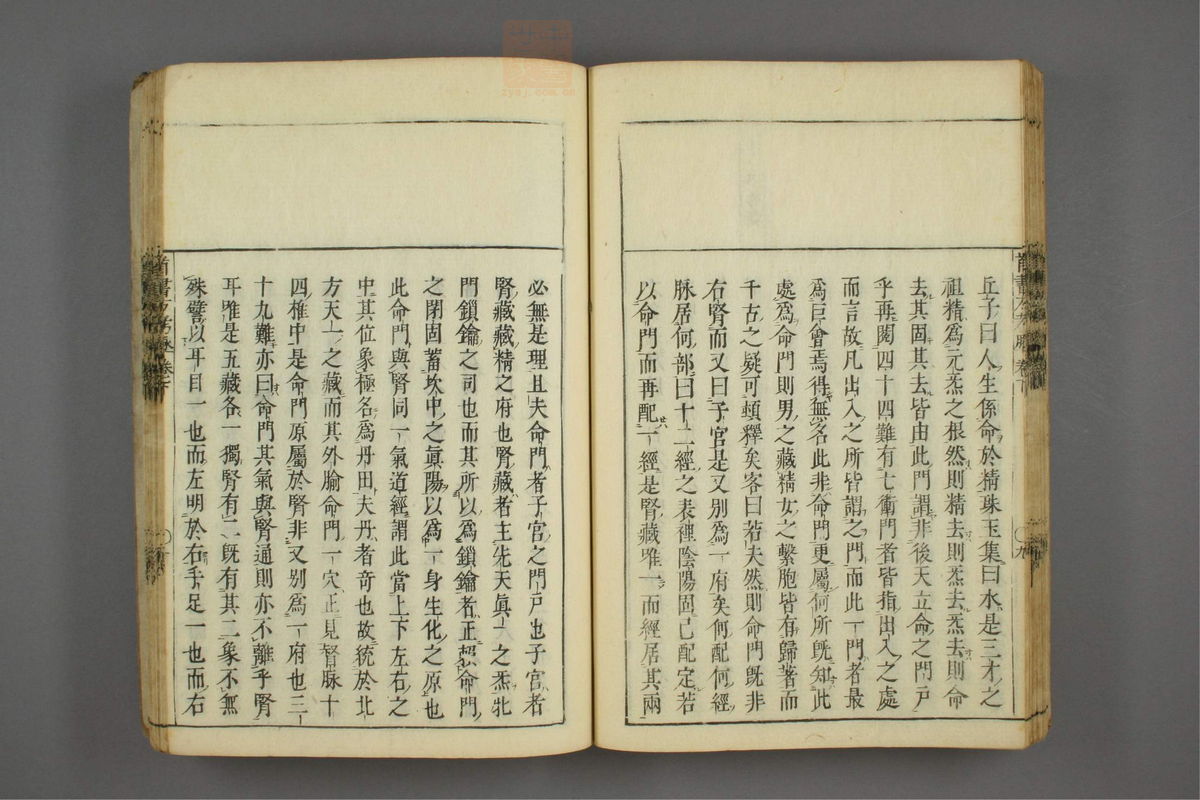 丘子曰人生係命於精珠玉集曰水是三才之
祖精爲元炁之根然則精去則炁去炁去則命
去其固其去皆由此門謂非後天立命之門戶
乎再閱四十四難有七衝門者皆指出入之處
而言故凡出入之所皆謂之門而此一門者最
爲巨會焉得無名此非命門更屬何所既知此
處爲命門則男之藏精女之繫胞皆有歸著而
千古之疑可頓釋矣客曰若夫然則命門既非
右腎而又曰子宮是又別爲一府矣何配何經
脉居何部曰十二經之表裡陰陽固已配定若
以命門而再配一經是腎藏唯一而經居其兩
必無是理且夫命門者子宮之門戸也子宮者
腎藏藏精之府也腎藏者主先天眞一之炁北
門鎖鑰之司也而其所以爲鎖鑰者正賴命門
之閉固蓄坎中之眞陽以爲一身生化之原也
此命門與腎同一氣道經謂此當上下左右之
中其位象極名爲丹田夫丹者奇也故統於北
方天一之藏而其外腧命門一穴正見督脉十
四椎中是命門原屬於腎非又別爲一府也三
十九難亦曰命門其氣與腎通則亦不離乎腎
耳唯是五藏各一獨腎有二既有其二象不無
殊譬以耳目一也而左明於右手足一也而右